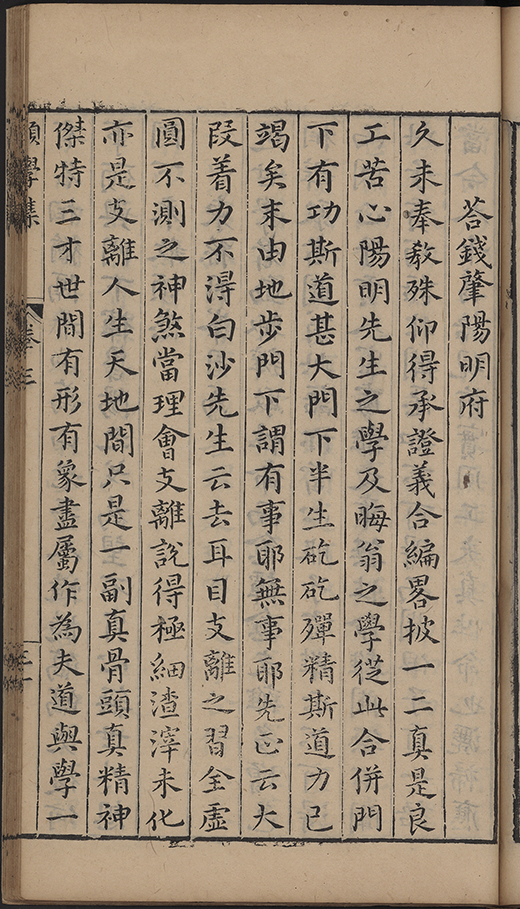 荅錢肇陽明府
久未奉教殊仰得承證義合編畧披一二真是良
工苦心陽明先生之學及晦翁之學從此合併門
下有功斯道甚大門下半生矻矻殫精斯道力已
竭矣末由地步門下謂有事耶無事耶先正云大
段着力不得白沙先生云去耳目支離之習全虛
圓不測之神煞當理會支離說得極細渣滓未化
亦是支離人生天地間只是一副真骨頭真精神
傑特三才世間有形有象盡屬作為夫道與學一
學集
卷三